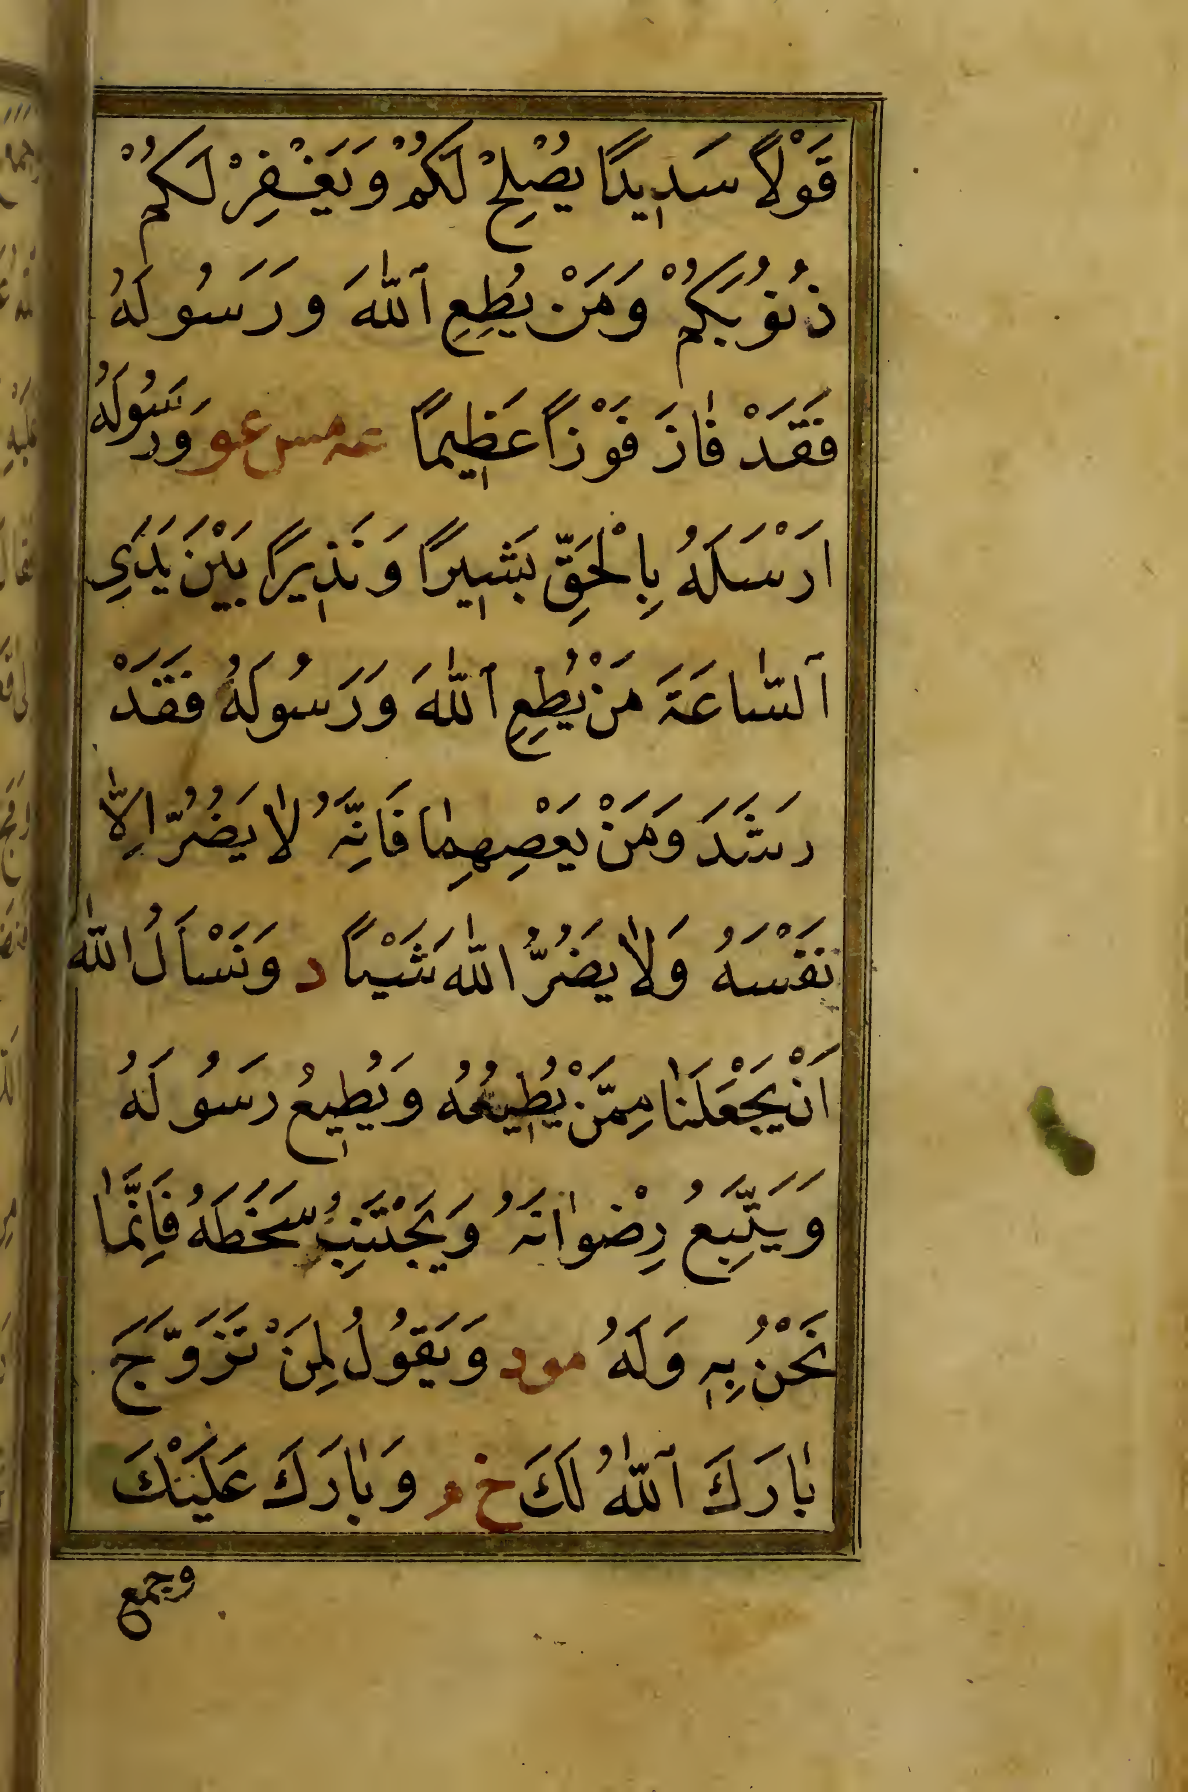 قَوْلًا سَدِيدًا يُصْلِحْ لَكُمْ وَيَغْفِرْ لَكُمْ
ذُنُوبَكُمْ وَمَنْ يُطِعِ اللّٰهَ وَرَسُولَهُ
فَقَدْ فَازَ فَوْزًا عَظِيمًا عه مس عو وَرَسُولُهُ
اَرْسَلَهُ بِالْحَقِّ بَشِيرًا وَنَذِيرًا بَيْنَ يَدَيِ
السَّاعَةَ مَنْ يُطِعِ اللّٰهَ وَرَسُولَهُ فَقَدْ
رَشَدَ وَمَنْ يَعْصِهِمَا فَاِنَّهُ لَا يَضُرُّ اِلَّا
نَفْسَهُ وَلَا يَضُرُّ اللّٰهَ شَيْئًا د وَنَسْاَلُ اللّٰهَ
اَنْ يَجْعَلَنَا مِمَّنْ يُطِيعُهُ وَيُطِيعُ رَسُولَهُ
وَيَتَّبِعُ رِضْوَانَهُ وَيَجْتَنِبُ سَخَطَهُ فَاِنَّمَا
نَحْنُ بِهِ وَلَهُ مود وَيَقُولُ لِمَنْ تَزَوَّجَ
بَارَكَ اللّٰهُ لَكَ خ م وَبَارَكَ عَلَيْكَ
وجمع